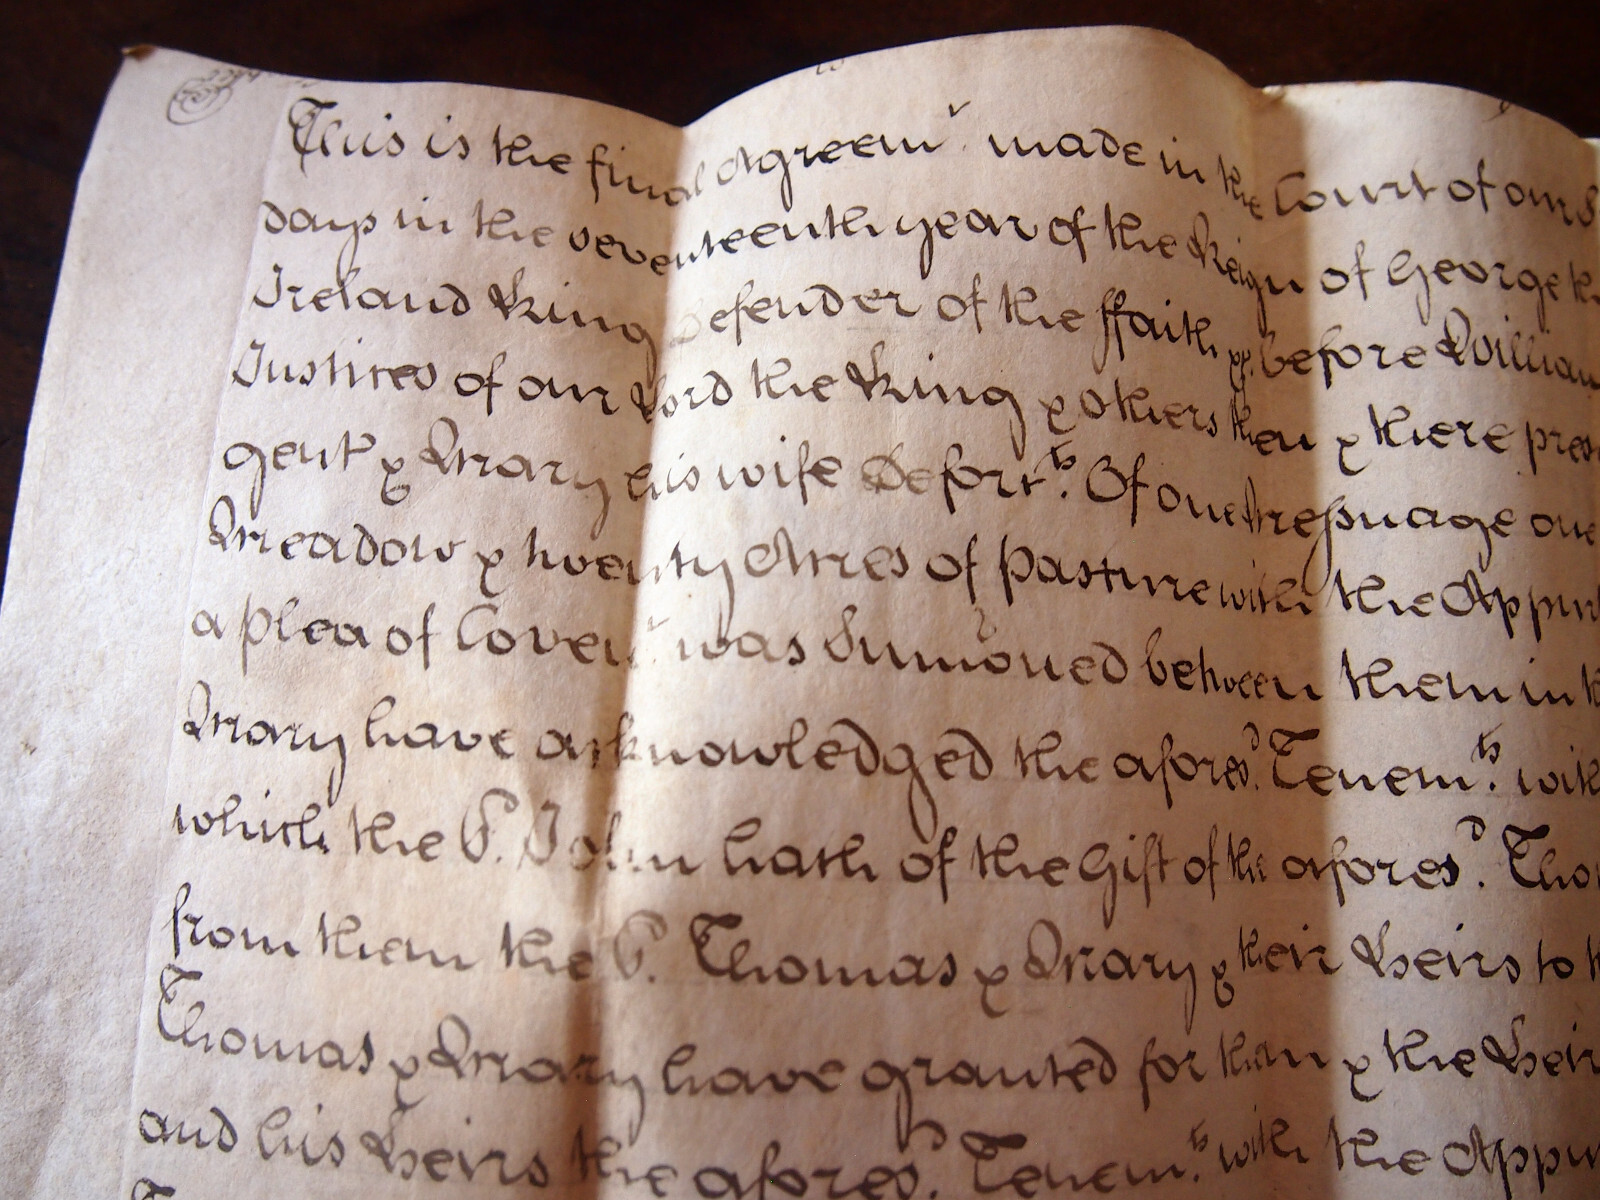 This is the final Agreemt. made in the Court of our S
days in the seventeenth year of the Reign of George th
Ireland King Defender of the ffaith &c. before William
Justices of our Lord the King & others then & there pres
gent & Mary his wife Deforts. Of one Messuage one
Meadow & twenty Acres of pasture with the Appurt
a plea of Covent. was Sumoned between them in t
Mary have acknowledged the aforesd. Tenemts. with
which the sd. John hath of the Gift of the aforesd. Tho
from them the sd. Thomas & Mary & their Heirs to t
Thomas & Mary have granted for them & the Heir
and his Heirs the aforesd. Tenemts. with the Appur